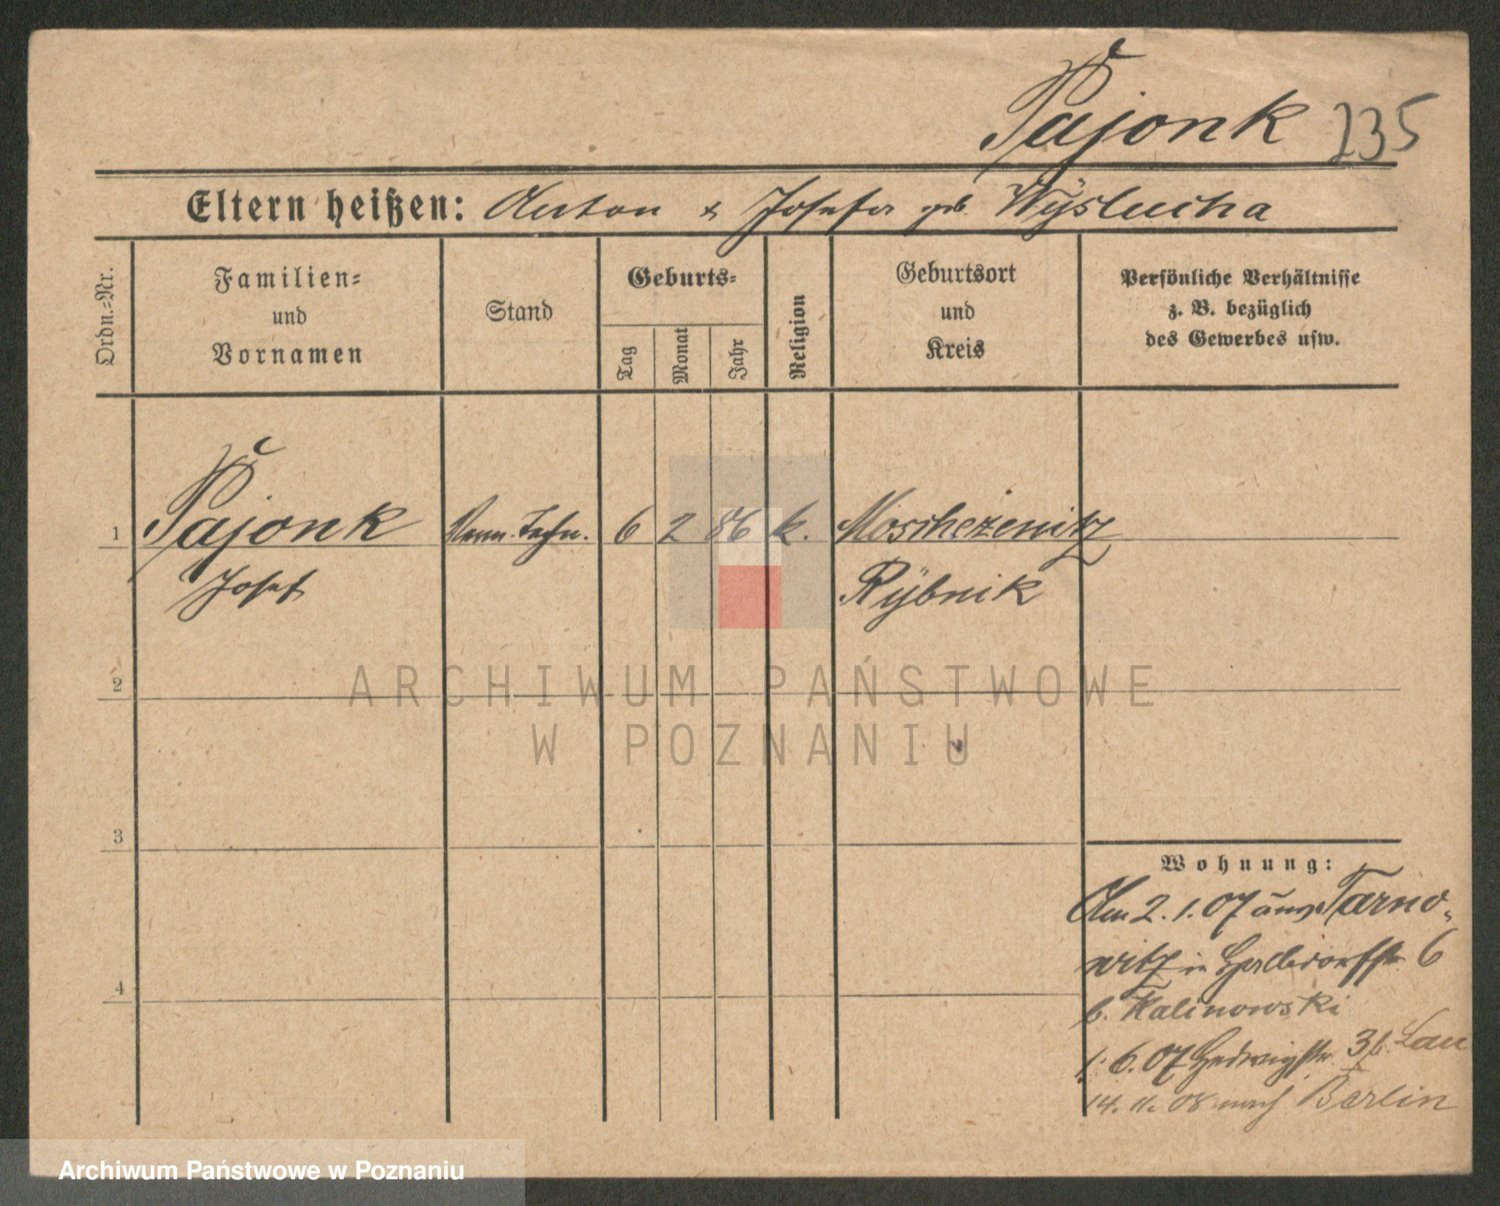 Pajonk 235
Eltern heißen: Anton & Josefa geb. Wÿslucha
Ordn.-Nr.
Familien-
und
Vornamen
Stand
Geburts-
Tag
Monat
Jahr
Religion
Geburtsort
und
Kreis
Persönliche Verhältnisse
z. B. bezüglich
des Gewerbes usw.
1 Pajonk Verm. Techn. 6 2 86 k. Moschczenitz
Josef Rÿbnik
2
3
4
Wohnung:
Am 2. 1. 07 Tarno-
witz in Halbdorfstr. 6
b. Kalinowski
1. 6. 07 Hedwigstr. 3 b. Lau
14. 11. 08 nach Berlin
ARCHIWUM PAŃSTWOWE
W POZNANIU
Archiwum Państwowe w Poznaniu